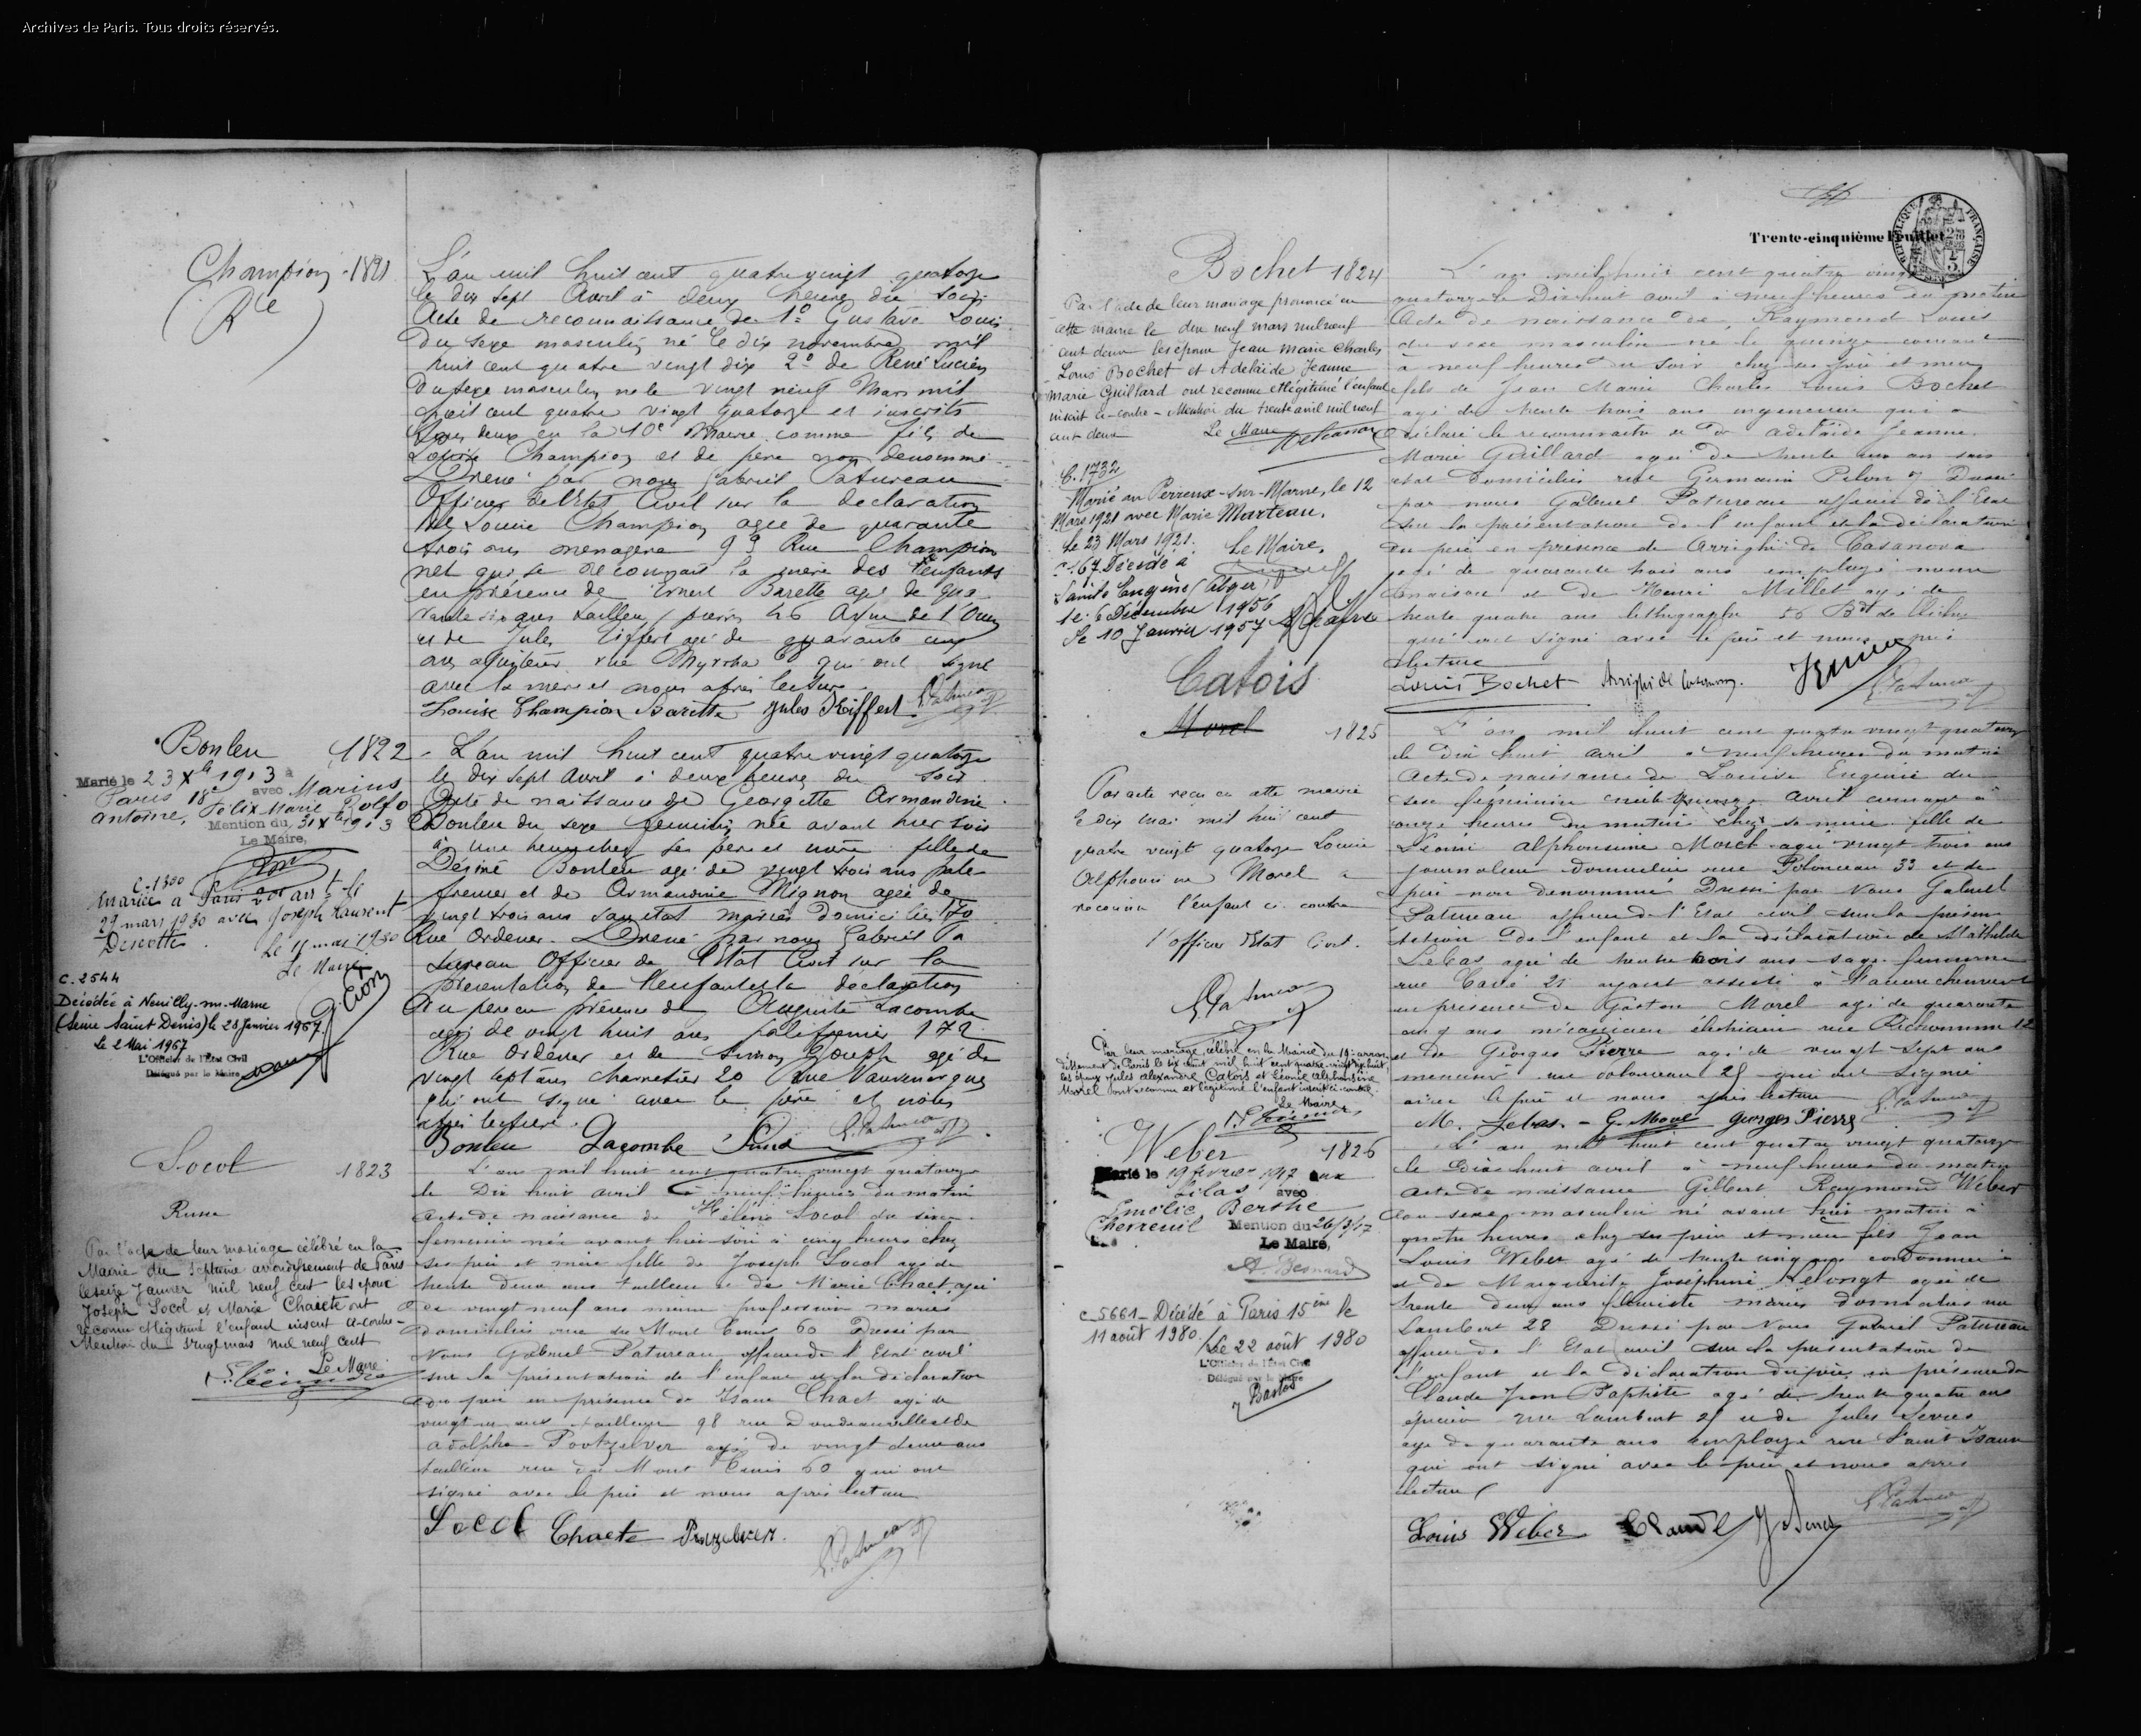 Archives de Paris. Tous droits réservés.
Champion 1821
(Rce)
L'an mil huit cent quatre vingt quatorze
le dix sept Avril à deux heures du soir
Acte de reconnaissance de 1º Gustave Louis
du sexe masculin né le dix novembre mil
huit cent quatre vingt dix 2º de René Lucien
du sexe masculin né le vingt neuf Mars mil
huit cent quatre vingt quatorze et inscrits
tous deux en la 10e Mairie comme fils de
Louise Champion et de père non dénommé
Dressé par nous Gabriel Patureau
Officier de l'Etat Civil sur la déclaration
de Louise Champion agée de quarante
trois ans menagère 99 Rue Championnet
qui se reconnait la mère des enfants
en présence de Ernest Barette agé de qua
rante six ans tailleur / pierres 46 de l'Ourcq
et de Jules agé de quarante cinq
ans rue Myrrha 68 qui ont signé
avec la mère et nous après lecture.
Louise Champion Barette Jules Kiffert GPatureau
Bonleu 1822
Marié le 23 Xbre 1913 à
Paris 18e avec Marius
Antoine, Félix Marie Rolfo
Mention du 31 Xbre 1913
Le Maire,
C. 1300
Mariée à Paris arrt le
29 mars 1930 avec Joseph Laurent
Descotte. Le 11 mai 1930
Le Maire
C. 2544
Décédée à Neuilly-sur-Marne
(Seine Saint Denis) le 28 Janvier 1967.
Le 2 Mai 1967
L'Officier de l'Etat Civil
Délégué par le Maire
L'an mil huit cent quatre vingt quatorze
le dix sept Avril à deux heures du soir
Acte de naissance de Georgette Armandine
Bonleu du sexe feminin née avant hier soir
à une heure chez ses père et mère fille de
Désiré Bonleu agé de vingt trois ans pale
frenier et de Armandine Mignon agée de
vingt trois ans sans état mariés domiciliés 170
Rue Ordener. Dressé par nous Gabriel Pa
tureau Officier de l'Etat Civil sur la
présentation de l'enfant et la déclaration
du père en présence de Auguste Lacombe
agé de vingt huit ans palefrenier 172
Rue Ordener et de Simon Joseph agé de
vingt sept ans charretier 20 Rue Vauvenargues
qui ont signé avec le père et nous
après lecture.
Bonleu Lacombe Simon GPatureau
Socol 1823
Russe
Par l'acte de leur mariage célébré en la
Mairie du septième arrondissement de Paris
le seize Janvier mil neuf cent les époux
Joseph Socol et Marie Chaete ont
reconnu et légitimé l'enfant inscrit ci-contre -
Mention du vingt mars mil neuf cent
Le Maire
L'an mil huit cent quatre vingt quatorze
le Dix huit avril à neuf heures du matin
Acte de naissance de Hélène Socol du sexe
feminin née avant hier soir à cinq heures chez
ses père et mère fille de Joseph Socol agé de
trente deux ans tailleur et de Marie Chaet agée
de vingt neuf ans même profession mariés
domiciliés rue du Mont Cenis 60 Dressé par
Nous Gabriel Patureau officier de l'Etat civil
sur la présentation de l'enfant et la déclaration
du père en présence de Isaac Chaet agé de
vingt ans tailleur 98 rue Doudeauville et de
Adolphe Portzelver agé de vingt deux ans
tailleur rue du Mont Cenis 60 qui ont
signé avec le père et nous après lecture
Socol Chaete GPatureau
Trente-cinquième Feuillet
RÉPUBLIQUE FRANÇAISE
Bochet 1824
Par l'acte de leur mariage prononcé en
cette mairie le dix neuf mars mil neuf
cent deux les époux Jean Marie Charles
Louis Bochet et Adelaïde Jeanne
Marie Guillard ont reconnu et légitimé l'enfant
inscrit ci-contre - Mention du trente avril mil neuf
cent deux Le Maire
C. 1732
Marié au Perreux-sur-Marne, le 12
Mars 1921 avec Marie Marteau.
Le 23 Mars 1921.
Le Maire,
Décédé à
(Alger)
le 6 Décembre 1956
Le 10 Janvier 1957
L'an mil huit cent quatre vingt
quatorze le Dix huit avril à neuf heures du matin
Acte de naissance de Raymond Louis
du sexe masculin né le quinze courant
à neuf heures du soir chez ses père et mère
fils de Jean Marie Charles Louis Bochet
agé de trente trois ans ingénieur qui a
déclaré le reconnaitre et de Adelaïde Jeanne
Marie Guillard agée de trente un an sans
état domiciliés rue Germain Pilon 7 Dressé
par nous Gabriel Patureau officier de l'Etat
sur la présentation de l'enfant et la déclaration
du père en présence de Arrighi de Casanova
agé de quarante trois ans employé même
maison et de Henri Millet agé de
trente quatre ans lithographe 56 Bd de Clichy
qui ont signé avec le père et nous après
lecture
Louis Bochet Arrighi de Casanova. GPatureau
Catois
Morel 1825
Par acte reçu en cette mairie
le dix mai mil huit cent
quatre vingt quatorze Léonie
Alphonsine Morel a
reconnu l'enfant ci contre
l'officier Etat Civil.
GPatureau
Par leur mariage célébré en la Mairie du 19e arron-
dissement de Paris le six août mil huit cent quatre-vingt-dix-huit,
les époux Jules Alexandre Catois et Léonie Alphonsine
Morel ont reconnu et légitimé l'enfant inscrit ci-contre
Le Maire
L'an mil huit cent quatre vingt quatorze
le Dix huit avril à neuf heures du matin
Acte de naissance de Louise Eugénie du
sexe féminin née le quinze avril courant à
onze heures du matin chez sa mère fille de
Léonie Alphonsine Morel agée vingt trois ans
journalière domiciliée rue Polonceau 33 et de
père non dénommé Dressé par Nous Gabriel
Patureau officier de l'Etat civil sur la présen
tation de l'enfant et la déclaration de Mathilde
Lebas agée de trente trois ans sage femme
rue Cavé 21 ayant assisté à l'accouchement
en présence de Gaston Morel agé de quarante
cinq ans mécanicien électricien rue Richomme 12
et de Georges Pierre agé de vingt sept ans
menuisier rue Polonceau 25 qui ont signé
avec le père et nous après lecture GPatureau
M. Lebas. - G. Morel Georges Pierre
Weber 1826
Marié le 19 février 1917 aux
Lilas avec
Emélie Berthe
Chevreuil Mention du 26/2/17
Le Maire,
A. Besnard
C. 5661 - Décédé à Paris 15ème le
11 août 1980. / Le 22 août 1980
L'Officier de l'Etat Civil
Délégué par le Maire
L'an mil huit cent quatre vingt quatorze
le Dix huit avril à neuf heures du matin
acte de naissance Gilbert Raymond Weber
du sexe masculin né avant hier matin à
quatre heures chez ses père et mère fils Jean
Louis Weber agé de trente cinq ans cordonnier
et de Marguerite Joséphine Kelongt agée de
trente deux ans fleuriste mariés domiciliés rue
Lambert 28 Dressé par Nous Gabriel Patureau
officier de l'Etat civil sur la présentation de
l'enfant et la déclaration du père en présence de
Claude Jean Baptiste agé de trente quatre ans
épicier rue Lambert 25 et de Jules Serres
agé de quarante ans employé rue Saint Isaure
qui ont signé avec le père et nous après
lecture
Louis Weber Claude GPatureau